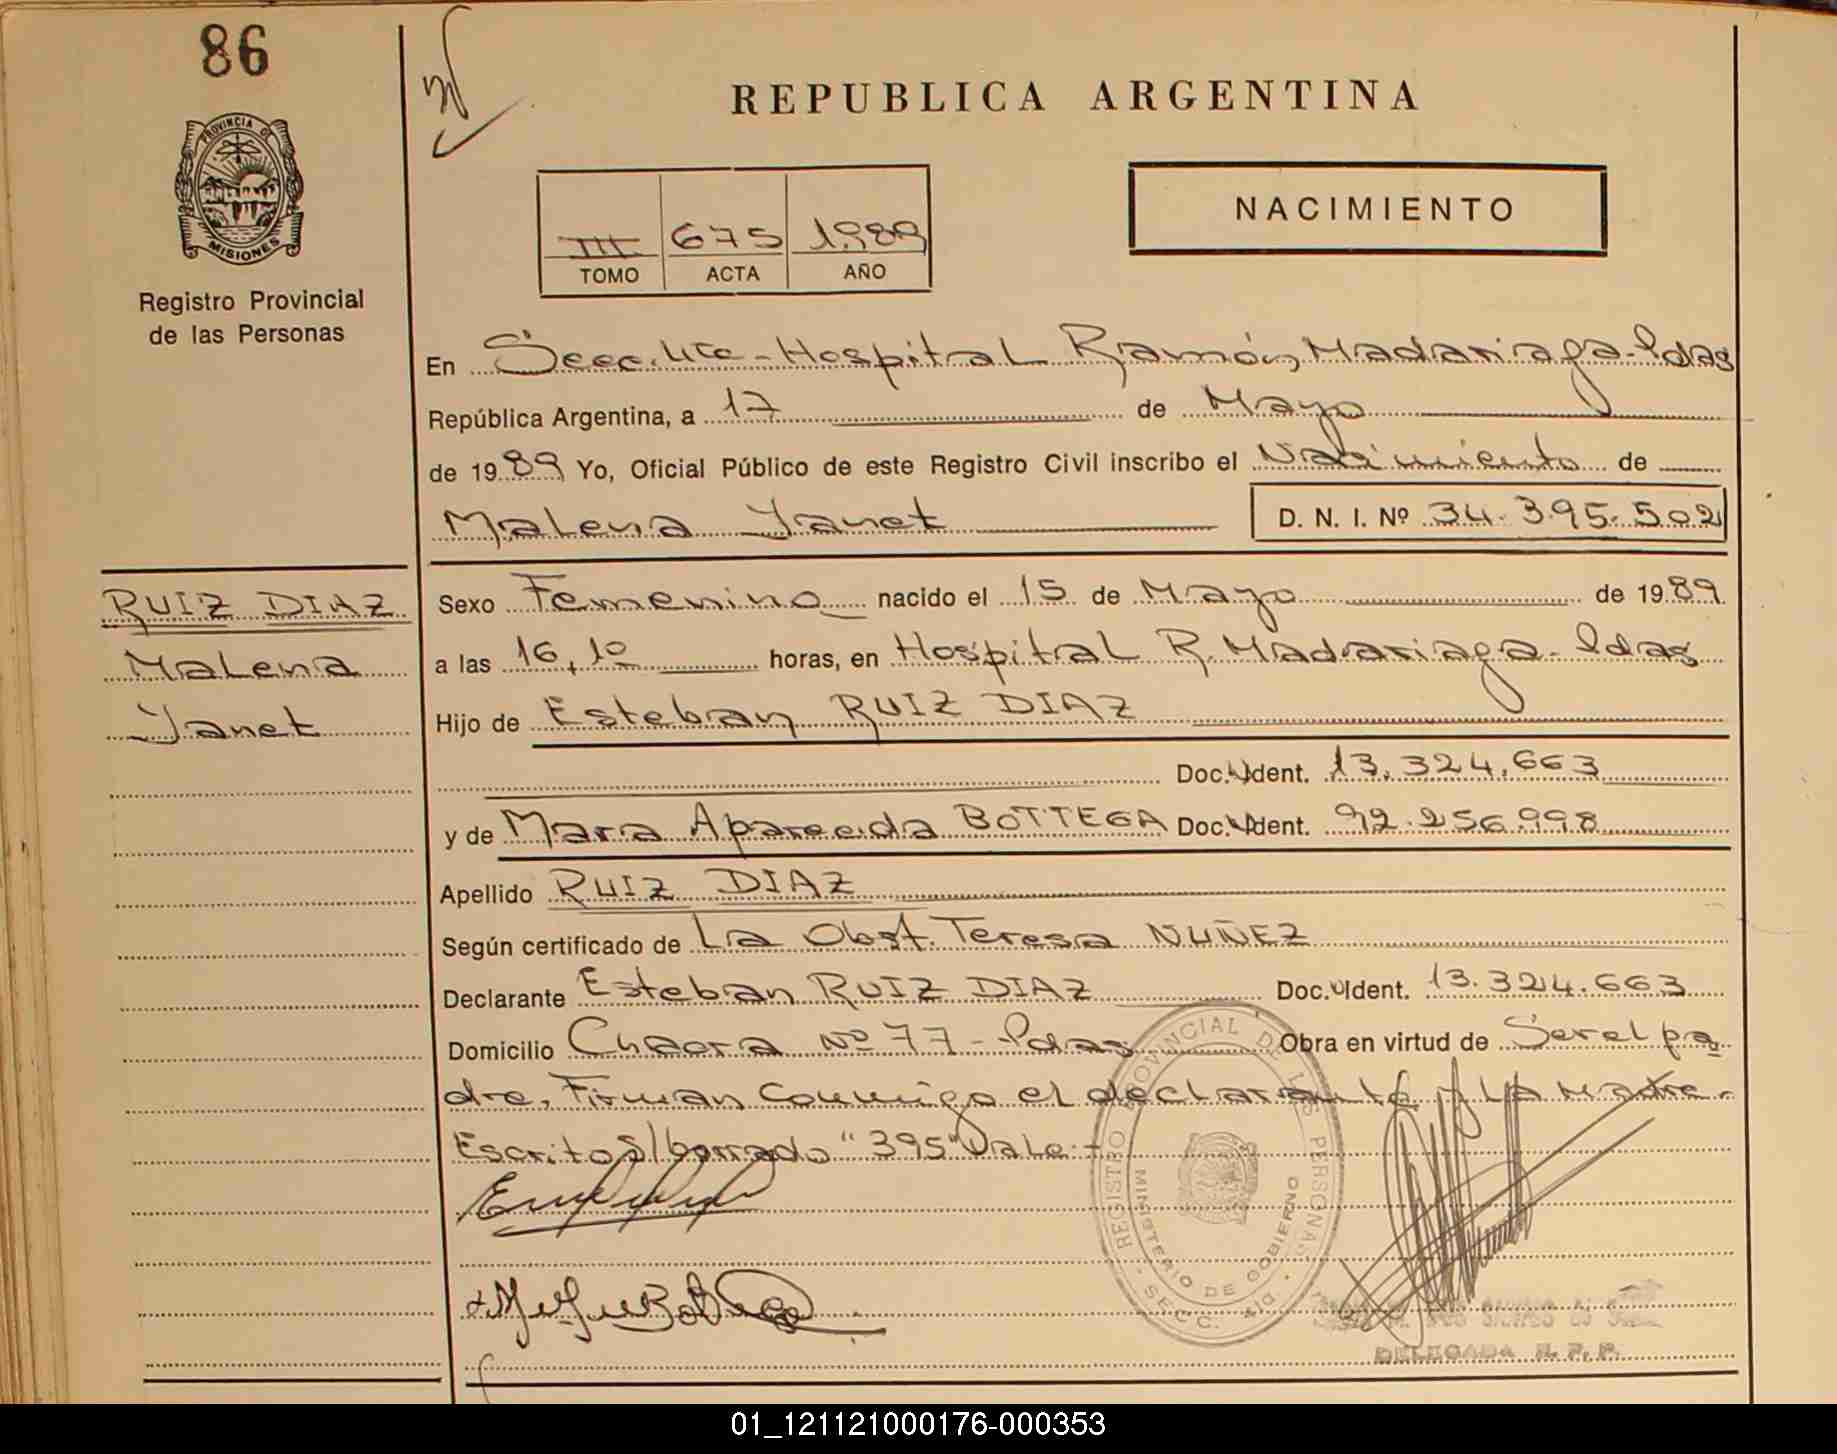 86
REPUBLICA ARGENTINA
PROVINCIA DE
MISIONES
Registro Provincial
de las Personas
III 675 1989
TOMO ACTA AÑO
NACIMIENTO
En Secc. 4ta - Hospital Ramón Madariaga - Pdas
República Argentina, a 17 de Mayo
de 1989 Yo, Oficial Público de este Registro Civil inscribo el Nacimiento de
Malena Yanet D. N. I. Nº 34.395.502
RUIZ DIAZ
Malena
Yanet
Sexo Femenino nacido el 15 de Mayo de 1989
a las 16,10 horas, en Hospital R. Madariaga - Pdas
Hijo de Esteban RUIZ DIAZ
Doc. Ident. 13.324.663
y de Mara Aparecida BOTTEGA Doc. Ident. 92.256.998
Apellido RUIZ DIAZ
Según certificado de La Obst. Teresa NUÑEZ
Declarante Esteban RUIZ DIAZ Doc. Ident. 13.324.663
Domicilio Chacra Nº 77 - Pdas Obra en virtud de Ser el pa
dre, Firman conmigo el declarante y la Madre.
Escrito s/borrado "395" Vale -
REGISTRO PROVINCIAL DE LAS PERSONAS
MINISTERIO DE GOBIERNO
SECC. 4ta
DELEGADA R. P. P.
01_121121000176-000353